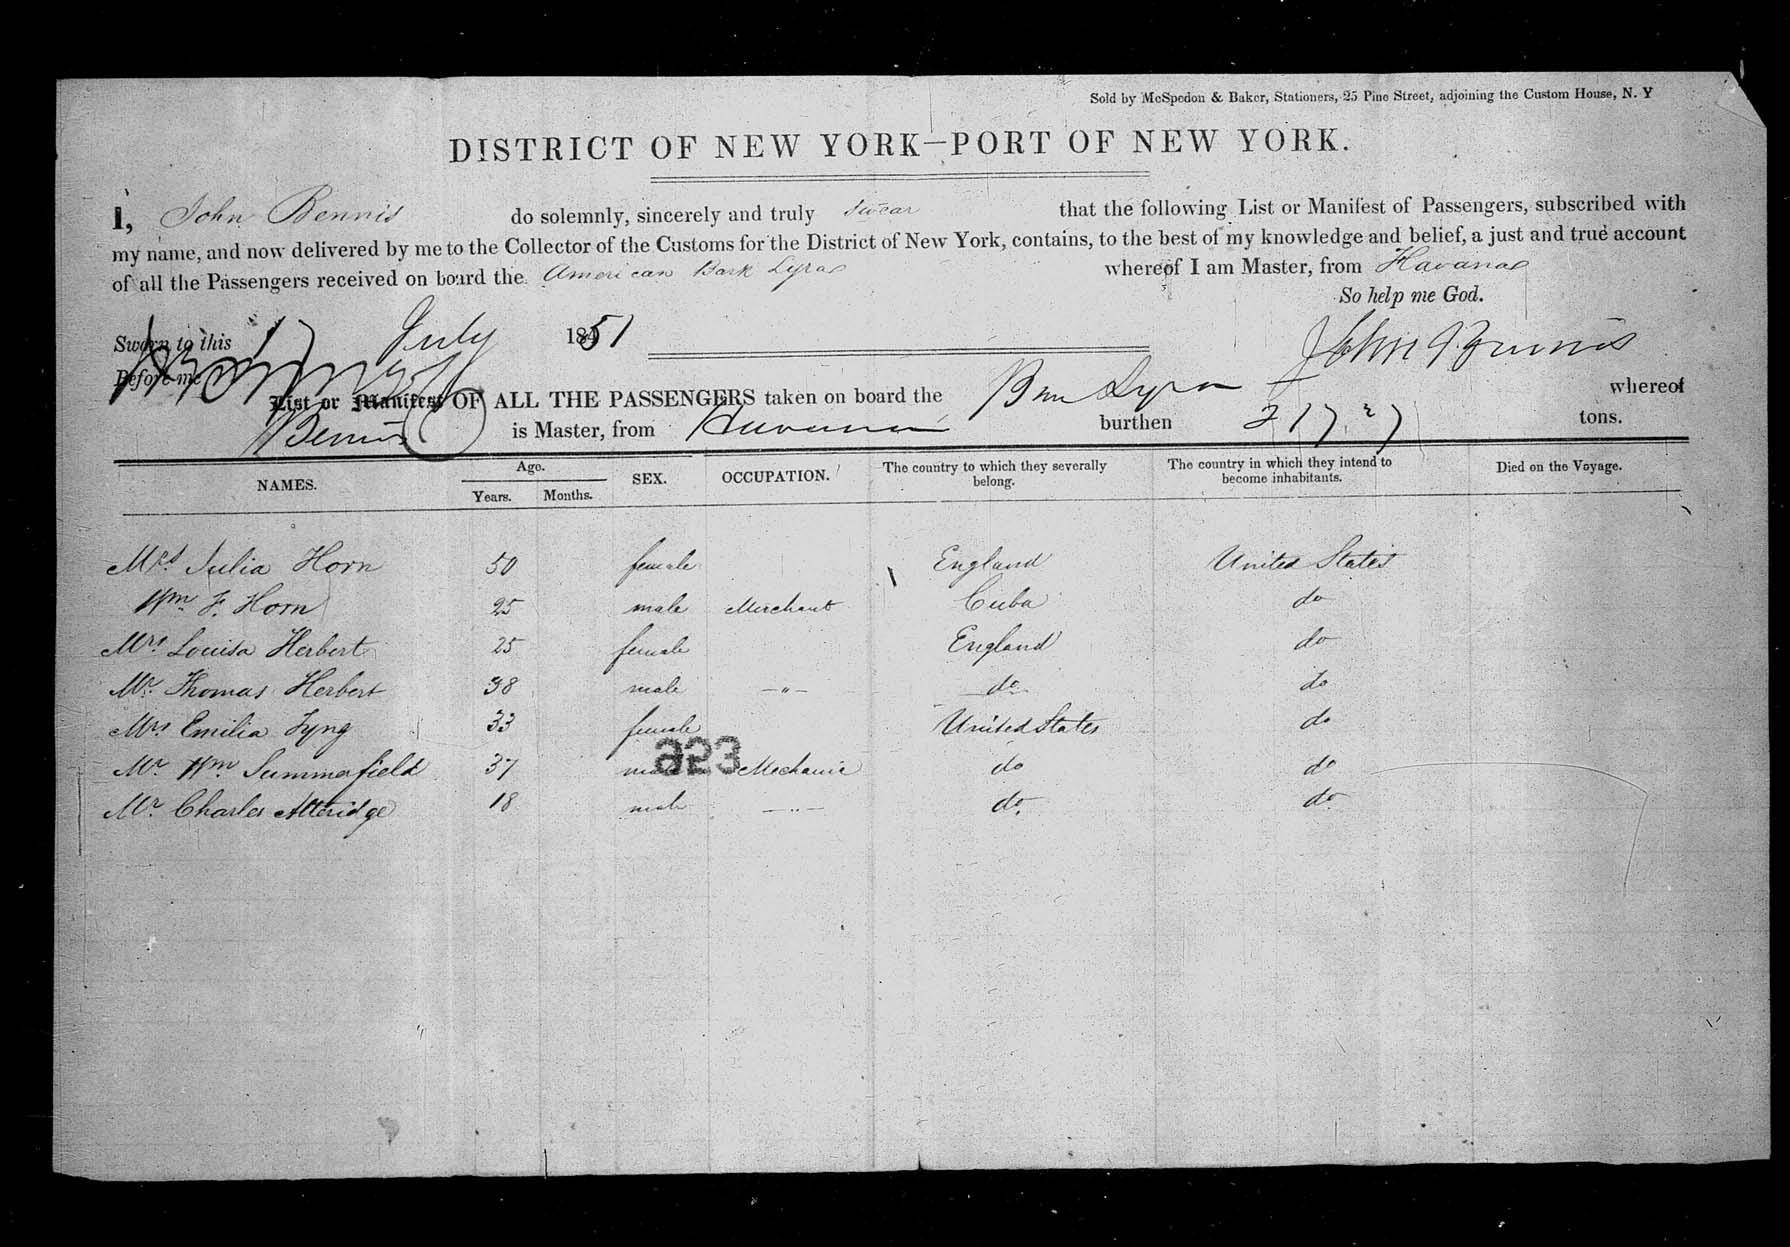 Sold by McSpedon & Baker, Stationers, 25 Pine Street, adjoining the Custom House, N. Y
DISTRICT OF NEW YORK—PORT OF NEW YORK.
I, John Bennis do solemnly, sincerely and truly swear that the following List or Manifest of Passengers, subscribed with
my name, and now delivered by me to the Collector of the Customs for the District of New York, contains, to the best of my knowledge and belief, a just and true account
of all the Passengers received on board the American Bark Lyra whereof I am Master, from Havana
So help me God.
Sworn to this 17 July 1851
Before me
John Bennis
List or Manifest OF ALL THE PASSENGERS taken on board the Lyra whereof
Bennis is Master, from Havana burthen 217 tons.
NAMES. Age. Years. Months. SEX. OCCUPATION. The country to which they severally belong. The country in which they intend to become inhabitants. Died on the Voyage.
Mrs. Julia Horn 50 female England United States
Wm F. Horn 25 male Merchant Cuba do
Mrs Louisa Herbert 25 female England do
Mr. Thomas Herbert 38 male —"— do do
Mrs Emilia Tyng 33 female United States do
Mr Wm Summerfield 37 male Mechanic do do
Mr Charles Atteridge 18 male —"— do. do
323